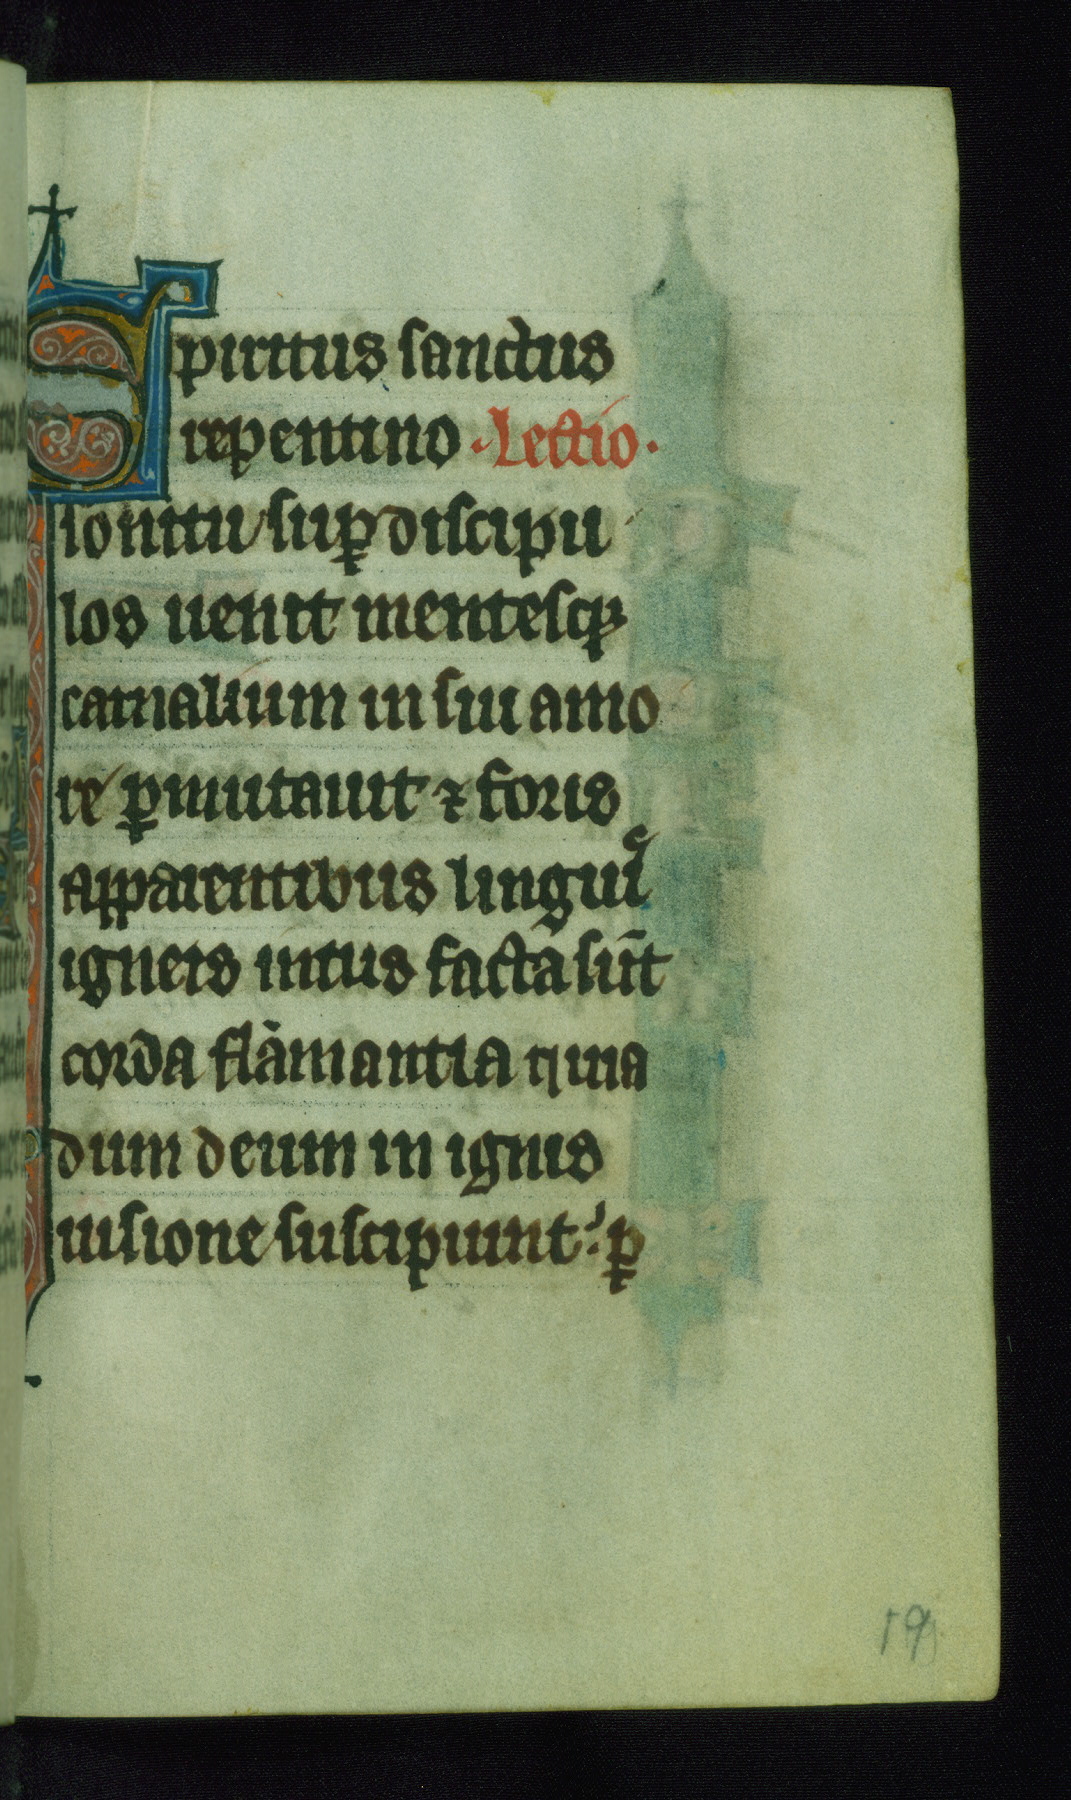 Spiritus sanctus
repentino · Lectio ·
sonitu sup̱ discipu
los uenit mentesq̱
carnalium in sui amo
re p̱mutauit ⁊ foris
apparentibus linguis
igneis intus facta sūt
corda flāmantia q̇ ina
dum deum in ignis
uisione suscipiunt: p̱
19